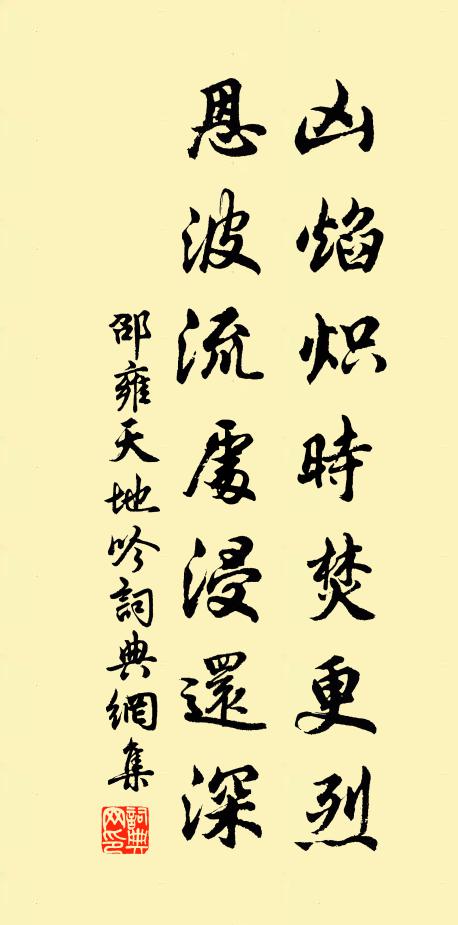 凶焰炽時焚更烈
恩波流處浸還深
邵雍天地吟詞典網集
詞典網印